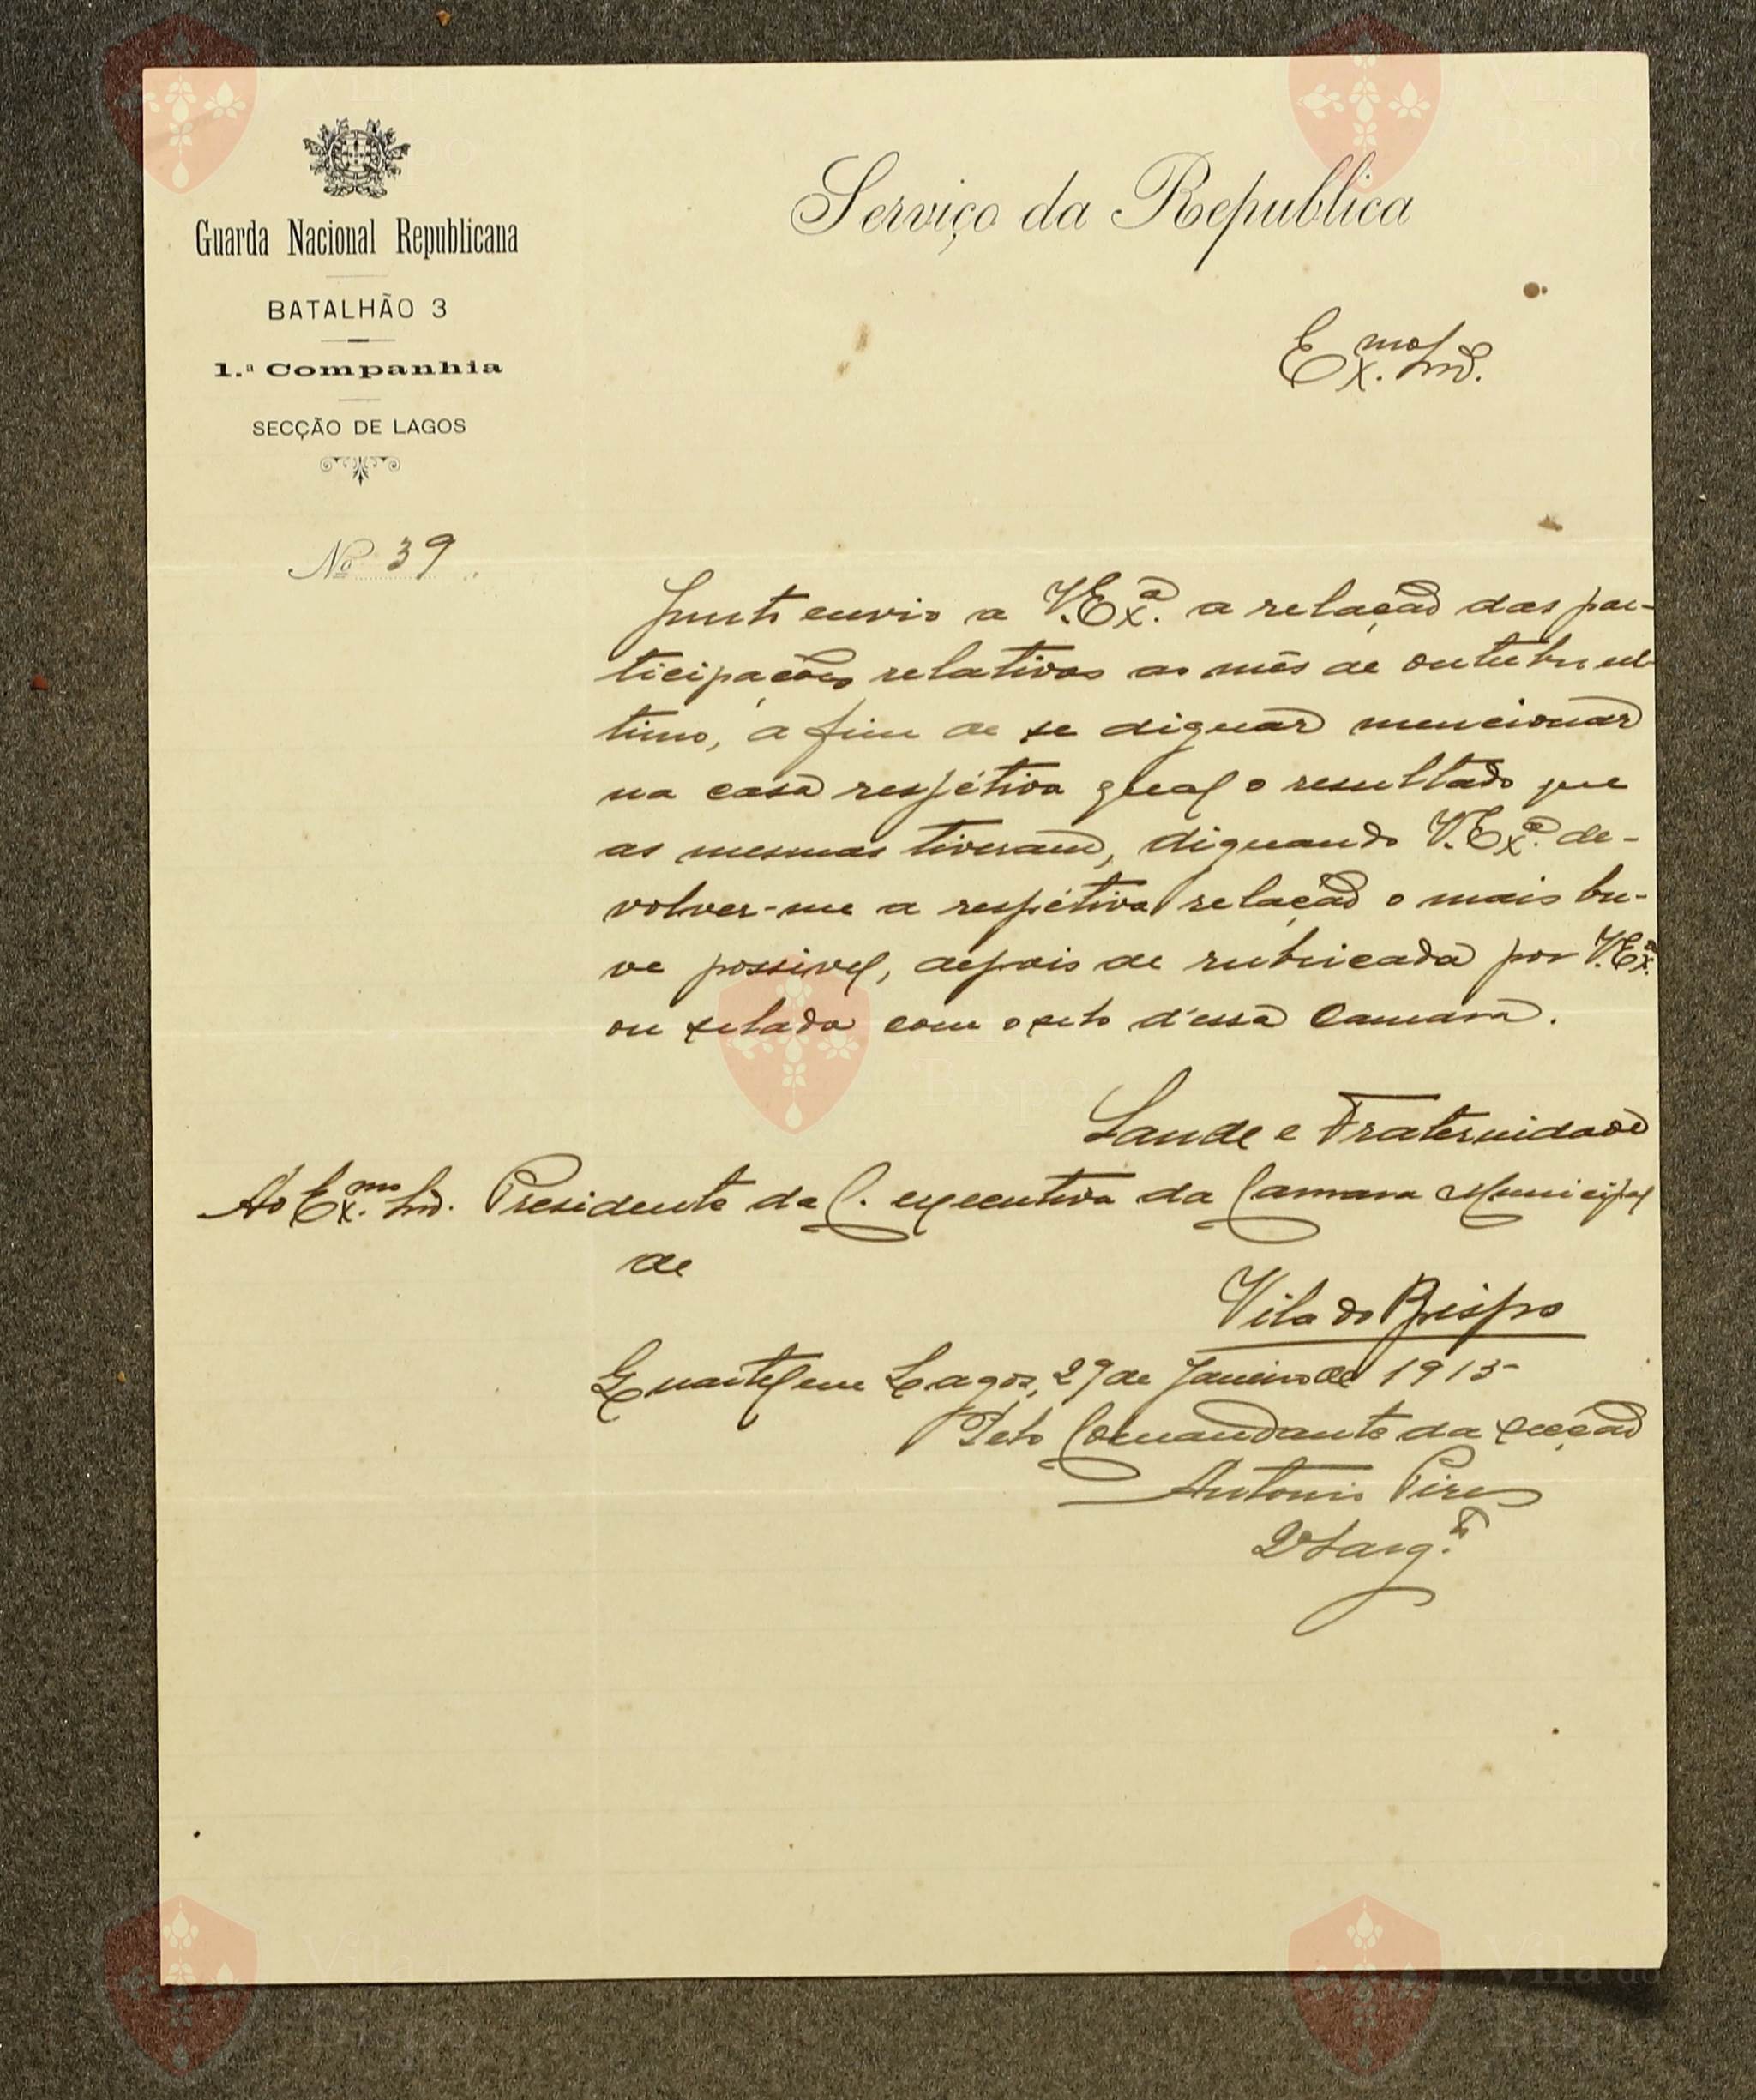 Guarda Nacional Republicana
BATALHÃO 3
1.ª Companhia
SECÇÃO DE LAGOS
Nº 39
Serviço da Republica
Ex.mo Snr.
Junto envio a V. Ex.ª a relação das par-
ticipações relativas ao mês de outubro ul-
timo, a fim de se dignar mencionar
na casa respétiva qual o resultado que
as mesmas tiveram, dignando V. Ex.ª de-
volver-me a respétiva relação o mais bre-
ve possivel, depois de rubricada por V. Ex.ª
ou selada com o selo d'essa Camara.
Saude e Fraternidade
Ao Ex.mo Snr. Presidente da C. executiva da Camara Municipal
de
Vila do Bispo
Quartel em Lagos, 29 de Janeiro de 1915
Pelo Comandante da secção
Antonio Pires
2º Sarg.to
Vila do
Bispo